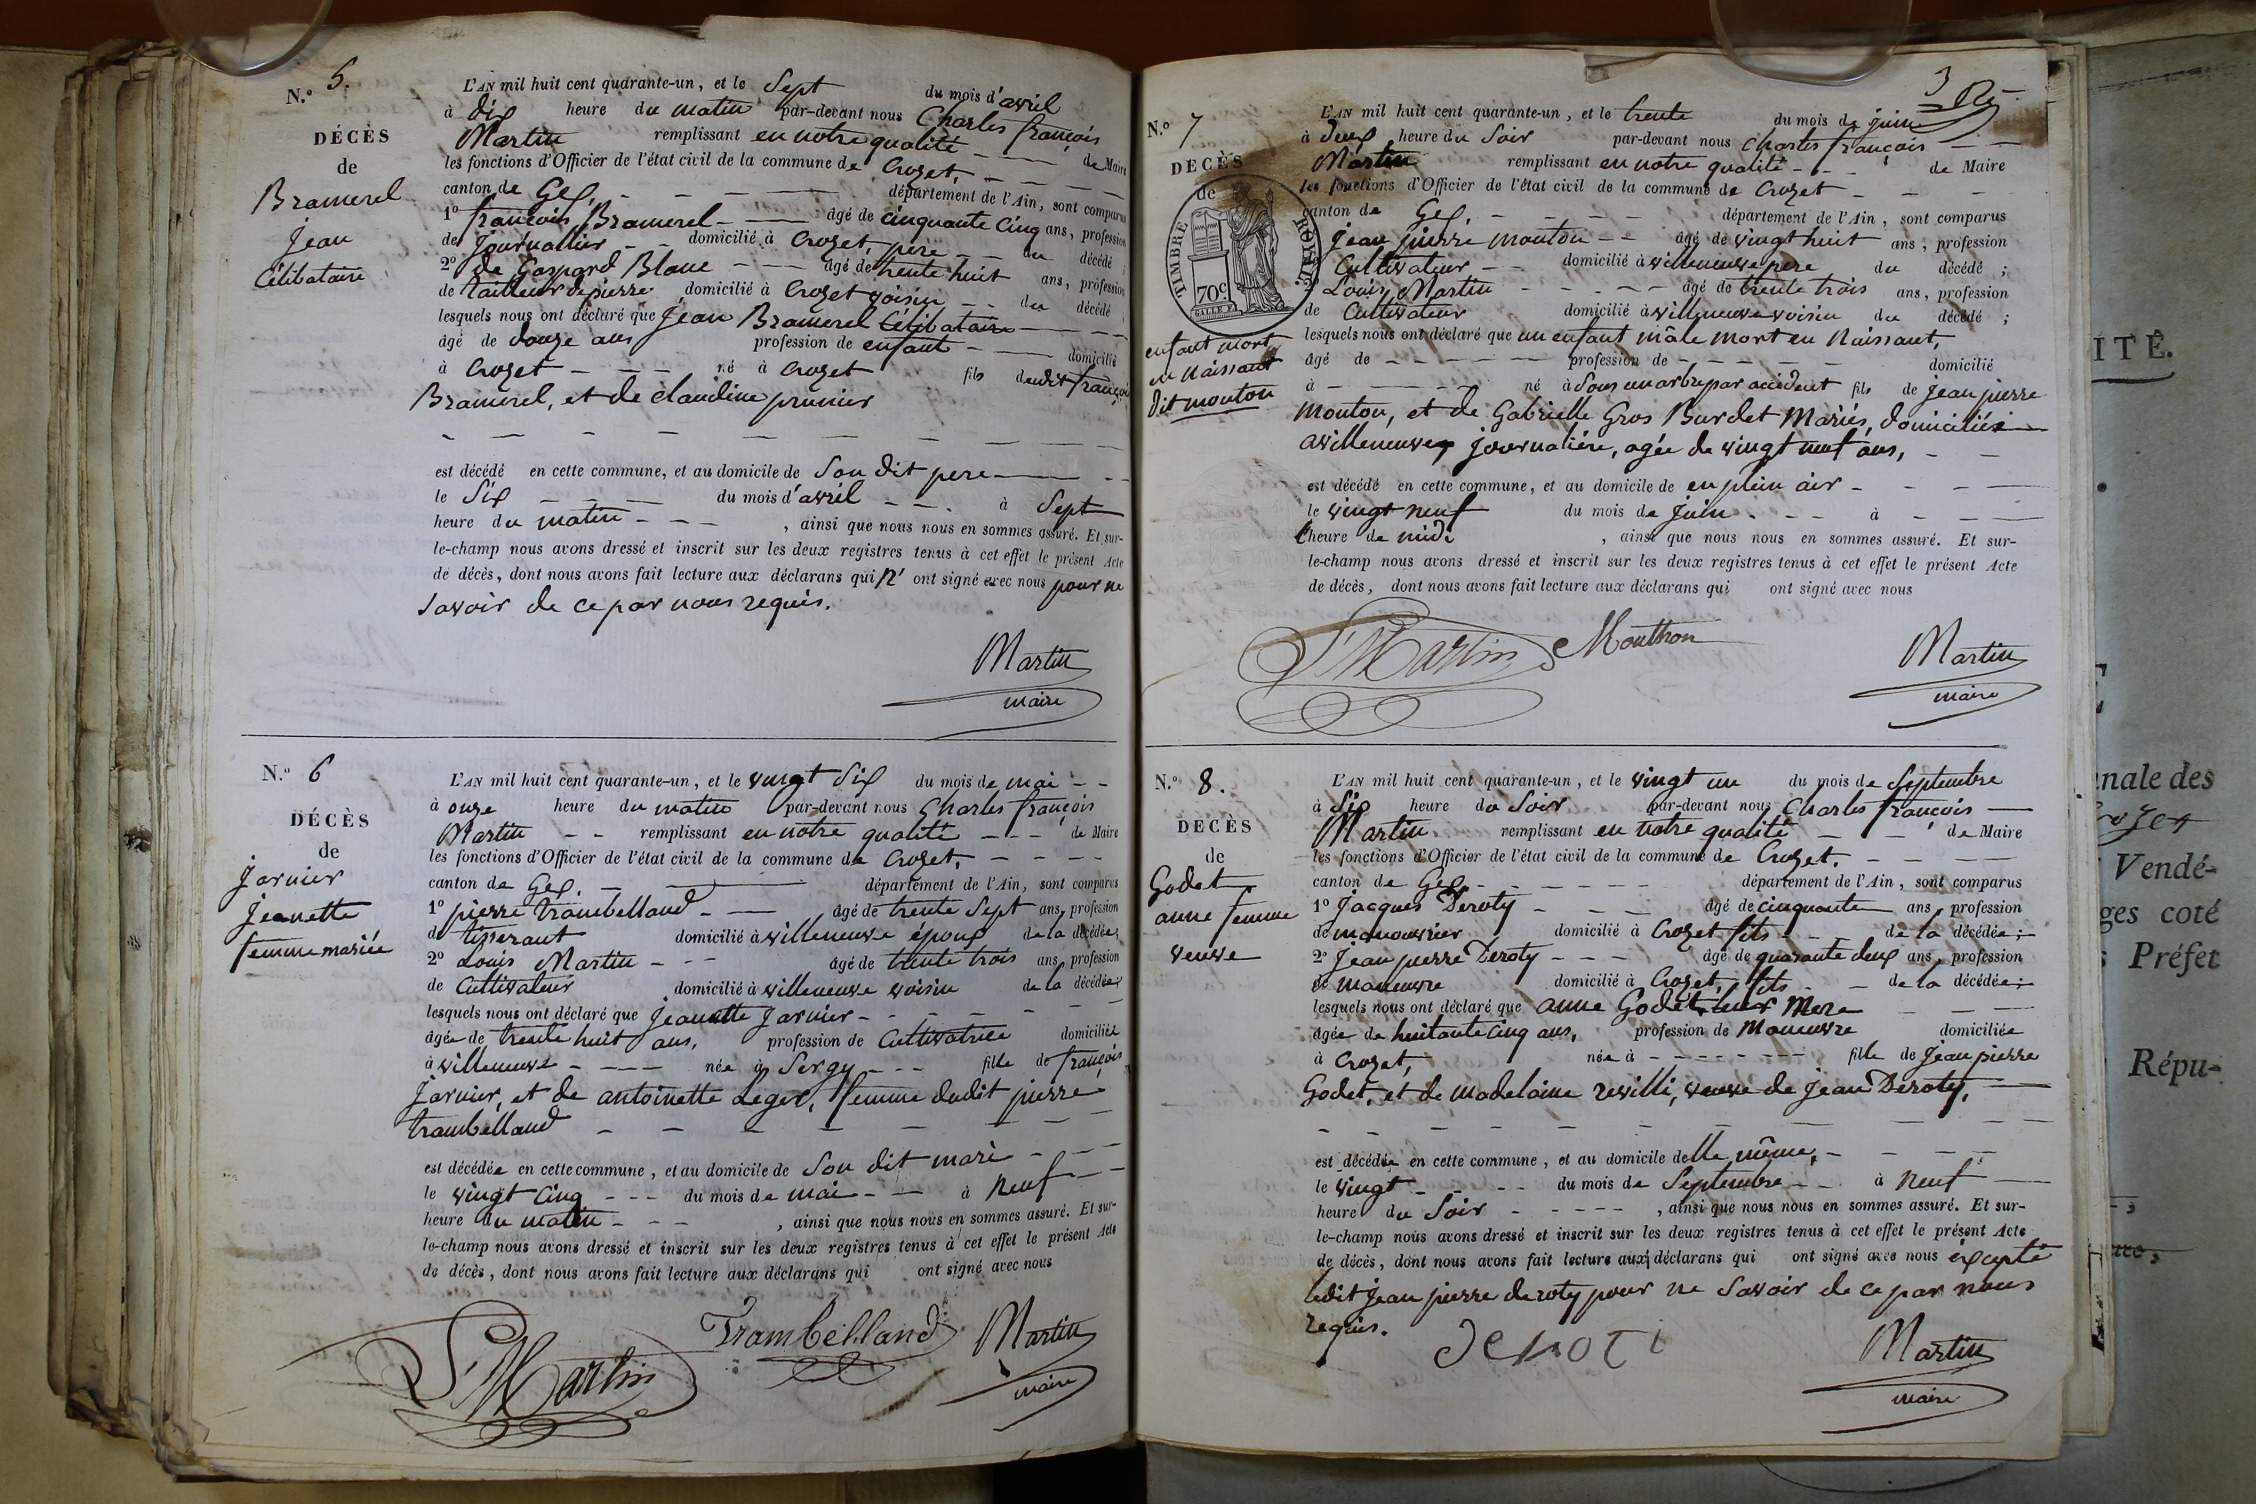 N.° 5.
DÉCÈS
de
Bramerel
Jean
Célibataire
L'AN mil huit cent quarante-un, et le Sept du mois d'avril
à dix heure du matin par-devant nous Charles françois
Martin remplissant en notre qualité - - - de Maire
les fonctions d'Officier de l'état civil de la commune de Crozet, - - -
canton de Gex, - - - département de l'Ain, sont comparus
1° françois Bramerel - - âgé de cinquante Cinq ans, profession
de Journallier - - domicilié à Crozet père - - du décédé ;
2° de Gaspard Blanc - - âgé de trente huit ans, profession
de tailleur de pierre domicilié à Crozet voisin - - du décédé
lesquels nous ont déclaré que Jean Bramerel Célibataire - - -
âgé de douze ans profession de enfant - - domicilié
à Crozet - - - né à Crozet fils dudit françois
Bramerel, et de claudine prunier
- - - - - - - - -
est décédé en cette commune, et au domicile de Son dit pere - - -
le Six - - - du mois d'avril - - . à Sept
heure du matin - - - , ainsi que nous nous en sommes assuré. Et sur-
le-champ nous avons dressé et inscrit sur les deux registres tenus à cet effet le présent Acte
de décès, dont nous avons fait lecture aux déclarans qui n' ont signé avec nous pour ne
Savoir de ce par nous requis.
Martin
maire
N.° 6
DÉCÈS
de
Jarnier
Jeanette
femme mariée
L'AN mil huit cent quarante-un, et le vingt Six du mois de mai - -
à onze heure du matin par-devant nous Charles françois
Martin - - remplissant en notre qualité - - - de Maire
les fonctions d'Officier de l'état civil de la commune de Crozet, - - - -
canton de Gex. - - département de l'Ain, sont comparus
1° pierre trambelland - - âgé de trente Sept ans, profession
de tisserant domicilié à villeneuve époux de la décédée;
2° Louis Martin - - - âgé de trente trois ans, profession
de Cultivateur domicilié à villeneuve voisin de la décédée;
lesquels nous ont déclaré que Jeanette Jarnier - - - - -
âgée de trente huit ans, profession de Cultivatrice domiciliée
à villeneuve - - - - née à Sergy - - - fille de françois
Jarnier, et de antoinette Leger, femme dudit pierre
trambelland - - - - - - -
est décédée en cette commune, et au domicile de Son dit mari - - -
le vingt Cinq - - - du mois de mai - - à Neuf - -
heure du matin - - - , ainsi que nous nous en sommes assuré. Et sur-
le-champ nous avons dressé et inscrit sur les deux registres tenus à cet effet le présent Acte
de décès, dont nous avons fait lecture aux déclarans qui ont signé avec nous
L Martin Trambelland Martin
maire
3
N.° 7
DÉCÈS
de
TIMBRE ROYAL
70c
enfant mort
en naissant
dit mouton
L'AN mil huit cent quarante-un, et le trente du mois de juin
à deux heure du Soir par-devant nous Charles françois - -
Martin remplissant en notre qualité - - - de Maire
les fonctions d'Officier de l'état civil de la commune de Crozet - - -
canton de Gex. - - - - département de l'Ain, sont comparus
Jean pierre mouton - - âgé de vingt huit ans, profession
Cultivateur - - domicilié à villeneuve pere du décédé ;
Louis Martin - - - - âgé de trente trois ans, profession
de Cultivateur domicilié à villeneuve voisin du décédé ;
lesquels nous ont déclaré que un enfant mâle mort en Naissant,
âgé de - - - - - profession de - - - - - domicilié
à - - - - - né à Sous un arbre par accident fils de Jean pierre
mouton, et de Gabrielle Gros Burdet Mariés, domiciliés
a villeneuve, journalière, agée de vingt neuf ans, - -
est décédé en cette commune, et au domicile de en plein air - - - -
le vingt neuf du mois de juin - - - à - - -
heure de midi , ainsi que nous nous en sommes assuré. Et sur-
le-champ nous avons dressé et inscrit sur les deux registres tenus à cet effet le présent Acte
de décès, dont nous avons fait lecture aux déclarans qui ont signé avec nous
L Martin Mouthon Martin
maire
N.° 8.
DÉCÈS
de
Godet
anne femme
veuve
L'AN mil huit cent quarante-un, et le vingt un du mois de Septembre
à Six heure du Soir par-devant nous Charles françois -
Martin remplissant en notre qualité - - de Maire
les fonctions d'Officier de l'état civil de la commune de Crozet. - - - -
canton de Gex - - - - - département de l'Ain, sont comparus
1° Jacques Deroty - - - âgé de cinquante ans, profession
de manouvrier domicilié à Crozet fils - - de la décédée ;
2° Jean pierre Deroty - - - âgé de quarante deux ans, profession
de maneuvre domicilié à Crozet, fils - - de la décédée ;
lesquels nous ont déclaré que anne Godet, leur Mere - - -
âgée de huitante cinq ans, profession de Maneuvre domiciliée
à Crozet, née à - - - - - - fille de Jean pierre
Godet, et de madelaine revilli, veuve de Jean Deroty,
- - - - - - - - -
est décédée en cette commune, et au domicile delle même, - - - -
le vingt - - - - du mois de Septembre - - à neuf -
heure du Soir - - - - - , ainsi que nous nous en sommes assuré. Et sur-
le-champ nous avons dressé et inscrit sur les deux registres tenus à cet effet le présent Acte
de décès, dont nous avons fait lecture aux déclarans qui ont signé avec nous éxcepté
ledit Jean pierre deroty pour ne Savoir de ce par nous
requis.
deroti Martin
maire
ITÉ.
nale des
rozet
Vendé-
ges coté
Préfet
Répu-